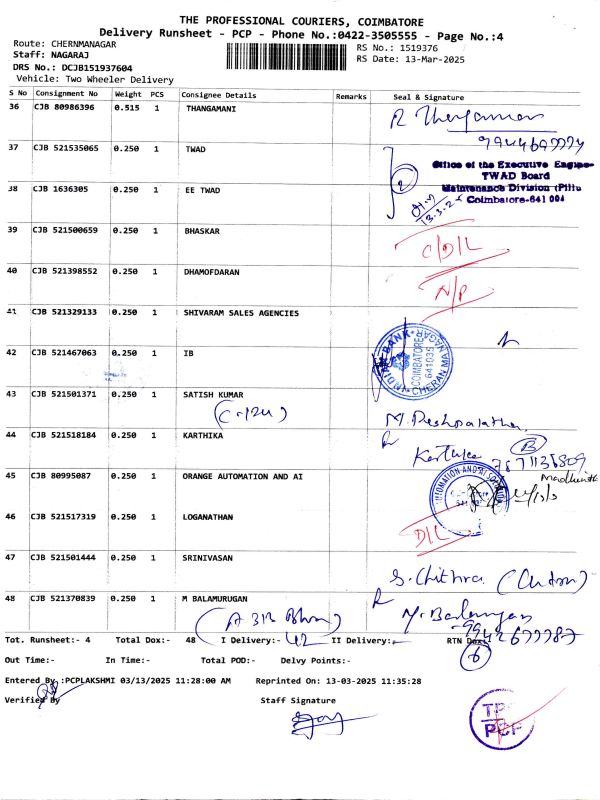 THE PROFESSIONAL COURIERS, COIMBATORE
Delivery Runsheet - PCP - Phone No.:0422-3505555 - Page No.:4
Route: CHERNMANAGAR
RS No.: 1519376
Staff: NAGARAJ
RS Date: 13-Mar-2025
DRS No.: DCJB151937604
Vehicle: Two Wheeler Delivery
S No Consignment No Weight PCS Consignee Details Remarks Seal & Signature
36 CJB 80986396 0.515 1 THANGAMANI
37 CJB 521535065 0.250 1 TWAD
Office of the Executive Engineer
TWAD Board
38 CJB 1636305 0.250 1 EE TWAD
Maintenance Division
Coimbatore-641 001
39 CJB 521500659 0.250 1 BHASKAR
C/D/L
40 CJB 521398552 0.250 1 DHAMOFDARAN
N/P
41 CJB 521329133 0.250 1 SHIVARAM SALES AGENCIES
42 CJB 521467063 0.250 1 IB
INDIAN BANK
COIMBATORE
641035
CHERAN MA NAGAR
43 CJB 521501371 0.250 1 SATISH KUMAR
44 CJB 521518184 0.250 1 KARTHIKA
B
45 CJB 80995087 0.250 1 ORANGE AUTOMATION AND AI
46 CJB 521517319 0.250 1 LOGANATHAN
D/L
47 CJB 521501444 0.250 1 SRINIVASAN
S. Chithra
48 CJB 521370839 0.250 1 M BALAMURUGAN
Tot. Runsheet:- 4 Total Dox:- 48 I Delivery:- 42 II Delivery:- RTN Dox:- 6
Out Time:- In Time:- Total POD:- Delvy Points:-
Entered By :PCPLAKSHMI 03/13/2025 11:28:00 AM Reprinted On: 13-03-2025 11:35:28
Verified By Staff Signature
PCP